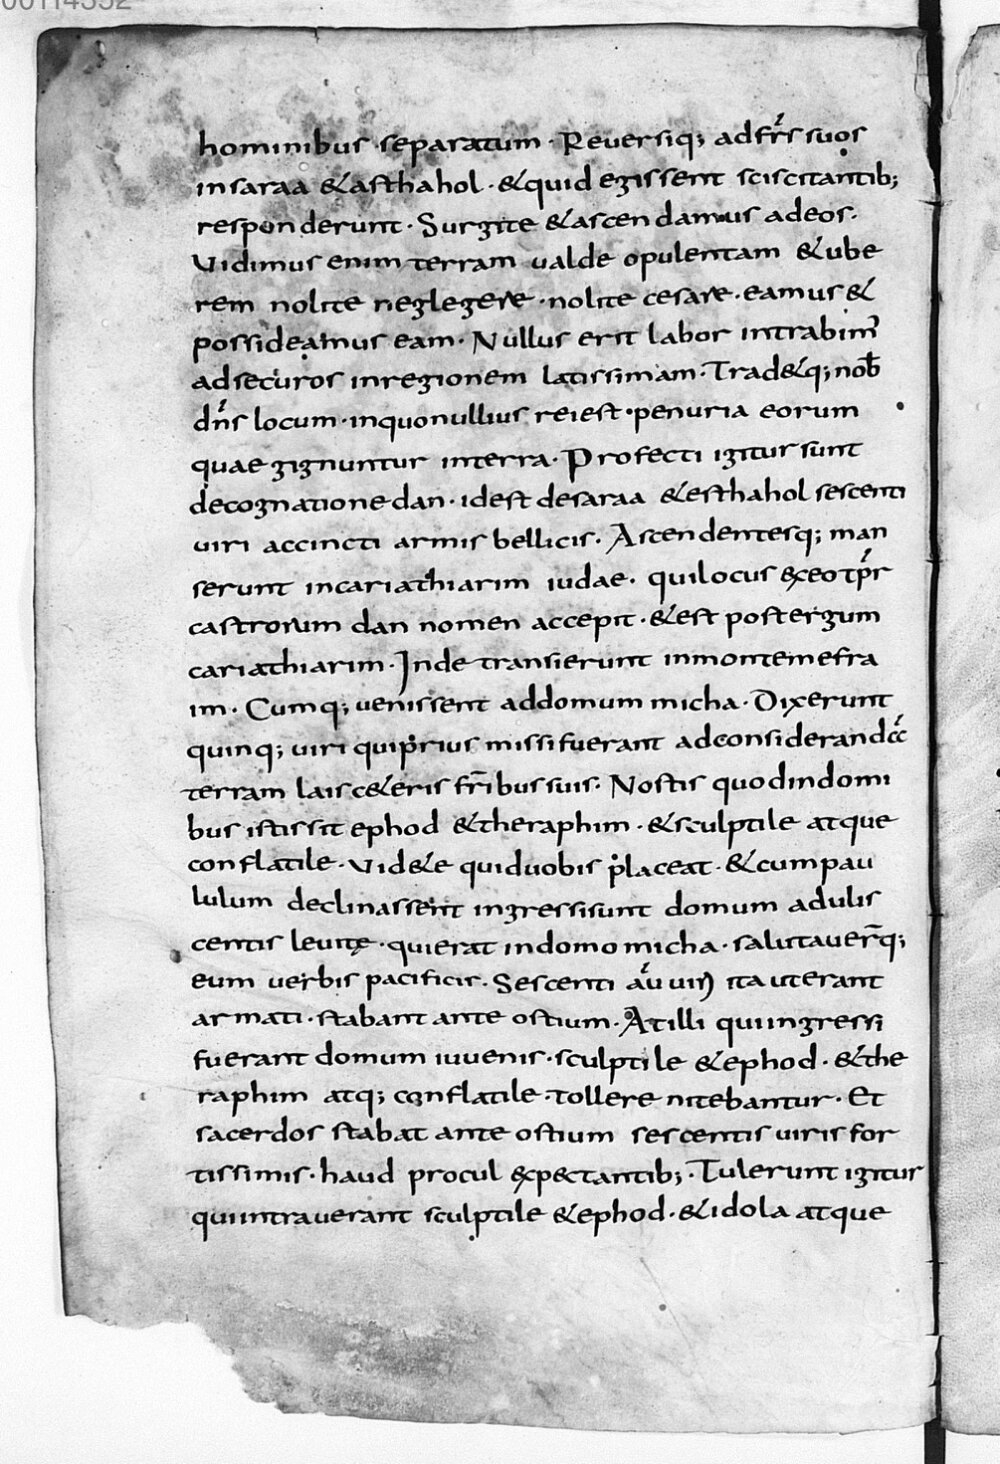 00114352
hominibus separatum · Reuersiq; ad fr̃s suos
in saraa & asthahol · & quid egissent sciscitantib;
responderunt · Surgite & ascendamus ad eos ·
Vidimus enim terram ualde opulentam & ube
rem nolite neglegere · nolite cesare · eamus &
possideamus eam · Nullus erit labor intrabim᾽
ad securos in regionem latissimam · Trad&q; nob̅
dñs locum · in quo nullius rei est · penuria eorum
quae gignuntur in terra · Profecti igitur sunt
de cognatione dan · id est de saraa & esthahol sescenti
uiri accincti armis bellicis · Ascendentesq; man
serunt in cariathiarim iudae · qui locus ex eo tp̃r
castrorum dan nomen accepit · & est post ergum
cariathiarim · Inde transierunt in montem efra
im · Cumq; uenissent ad domum micha · Dixerunt
quinq; uiri qui prius missi fuerant ad considerand
terram lais c&eris fr̃ibus suis · Nostis quod in domi
bus istis sit ephod & theraphim · & sculptile atque
conflatile · Vid&e quid uobis placeat · & cum pau
lulum declinassent ingressi sunt domum adulis
centis leuitę · qui erat in domo micha · salutauer̃q;
eum uerbis pacificis · Sescenti aũ uiri ita ut erant
armati · stabant ante ostium · At illi qui ingressi
fuerant domum iuuenis · sculptile & ephod · & the
raphim atq; conflatile · tollere nitebantur · Et
sacerdos stabat ante ostium sescentis uiris for
tissimis · haud procul exp&ctantib; · Tulerunt igitur
qui intrauerant sculptile & ephod · & idola atque